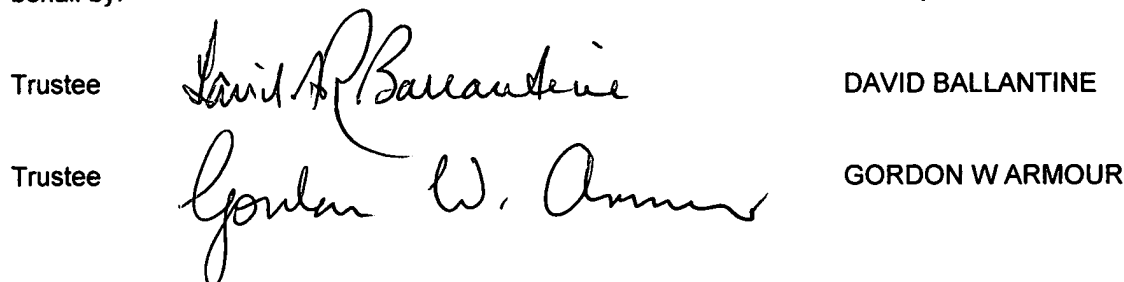 behalf by:
Trustee David R Ballantine DAVID BALLANTINE
Trustee Gordon W. Armour GORDON W ARMOUR